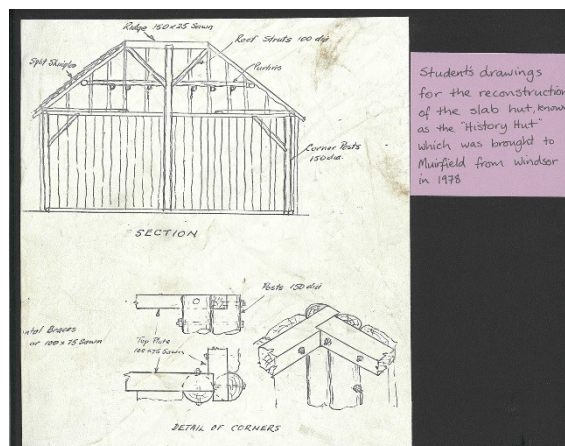 Ridge 150 x 25 Sawn
Roof Struts 100 dia
Split Shingles
Purlins
Corner Posts
150 dia.
SECTION
Posts 150 dia
Braces
or 100 x 75 Sawn
Top Plate
100 x 75 Sawn
DETAIL OF CORNERS
Students drawings
for the reconstruction
of the slab hut, know
as the "History Hut"
which was brought to
Muirfield from Windsor
in 1978